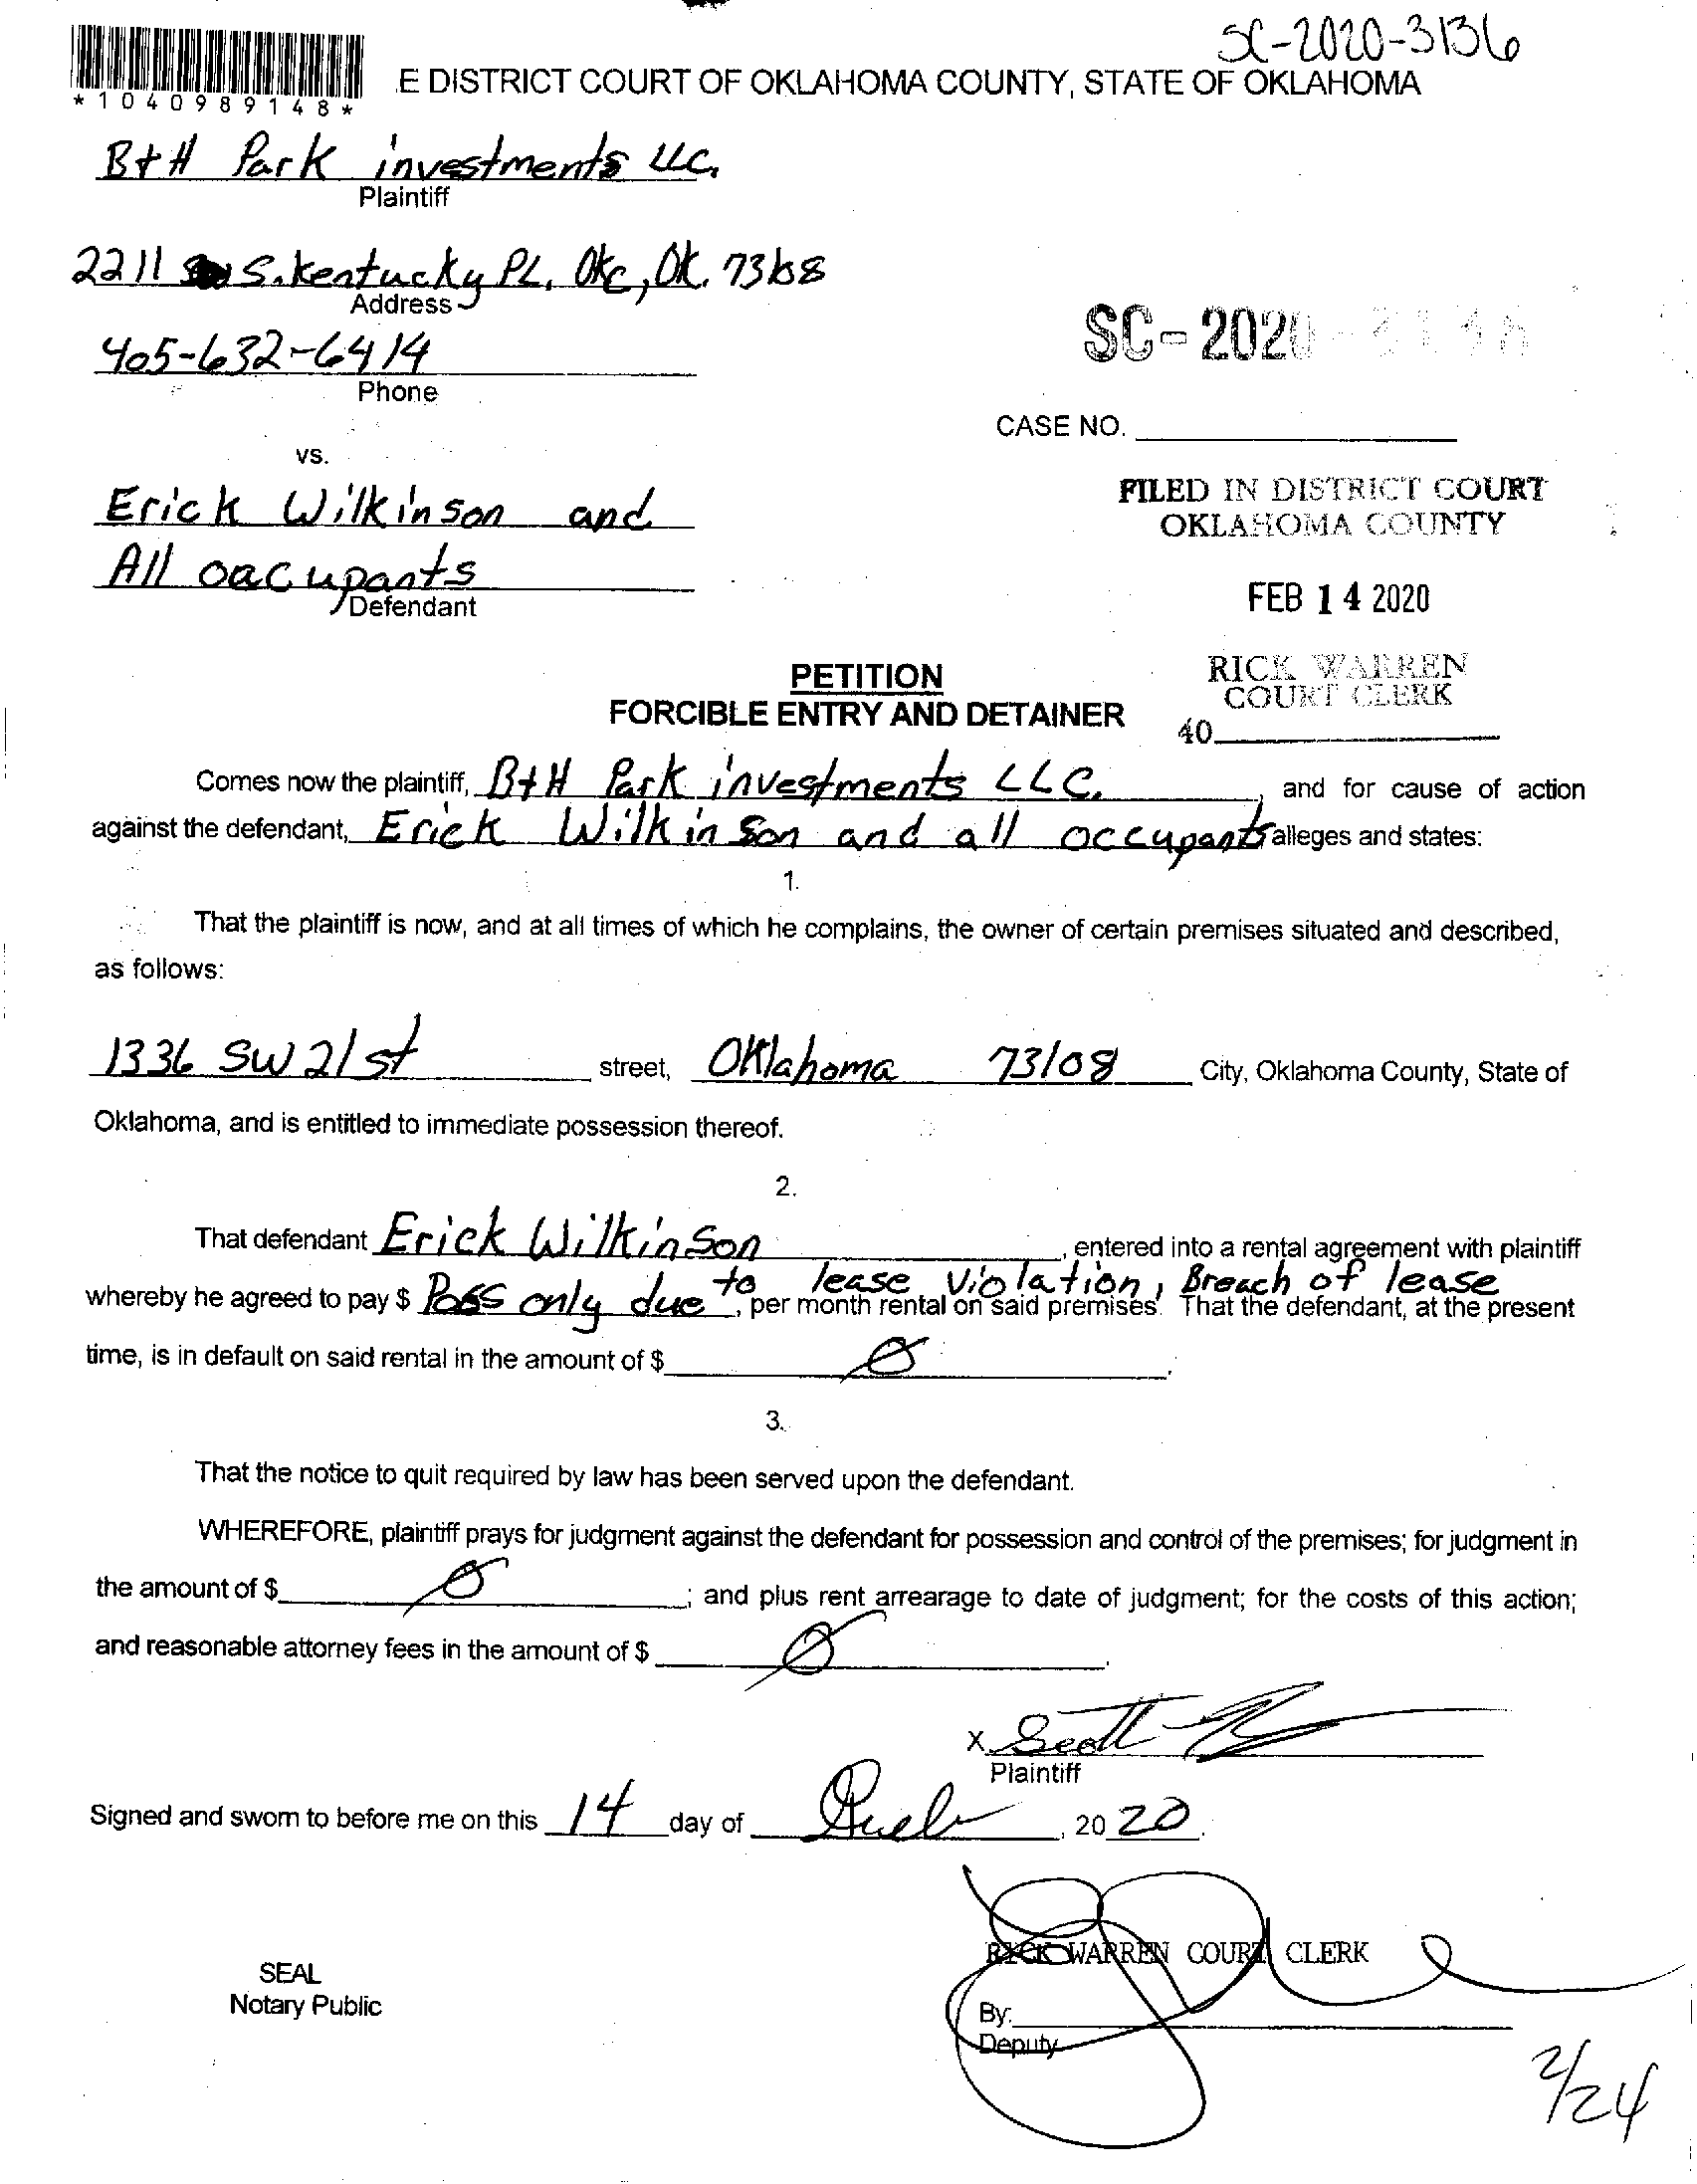 SC-2020-3136
*1040989148*
E DISTRICT COURT OF OKLAHOMA COUNTY, STATE OF OKLAHOMA
B+H Park investments LLC.
Plaintiff
2211 S. Kentucky PL. Okc, OK. 73108
Address
405-632-6414
Phone
SC-2020-3136
CASE NO.
vs.
Erick Wilkinson and
All oacupants
Defendant
FILED IN DISTRICT COURT
OKLAHOMA COUNTY
FEB 14 2020
RICK WARREN
COURT CLERK
40
PETITION
FORCIBLE ENTRY AND DETAINER
Comes now the plaintiff, B+H Park investments LLC. , and for cause of action
against the defendant, Erick Wilkinson and all occupants alleges and states:
1.
That the plaintiff is now, and at all times of which he complains, the owner of certain premises situated and described,
as follows:
1336 SW 21st street, Oklahoma 73108 City, Oklahoma County, State of
Oklahoma, and is entitled to immediate possession thereof.
2.
That defendant Erick Wilkinson , entered into a rental agreement with plaintiff
whereby he agreed to pay $ Poss only due to lease Violation, Breach of lease , per month rental on said premises. That the defendant, at the present
time, is in default on said rental in the amount of $ Ø .
3.
That the notice to quit required by law has been served upon the defendant.
WHEREFORE, plaintiff prays for judgment against the defendant for possession and control of the premises; for judgment in
the amount of $ Ø ; and plus rent arrearage to date of judgment; for the costs of this action;
and reasonable attorney fees in the amount of $ Ø .
X Scott
Plaintiff
Signed and sworn to before me on this 14 day of , 20 20 .
RICK WARREN COURT CLERK
SEAL
Notary Public
By:
Deputy
2/24